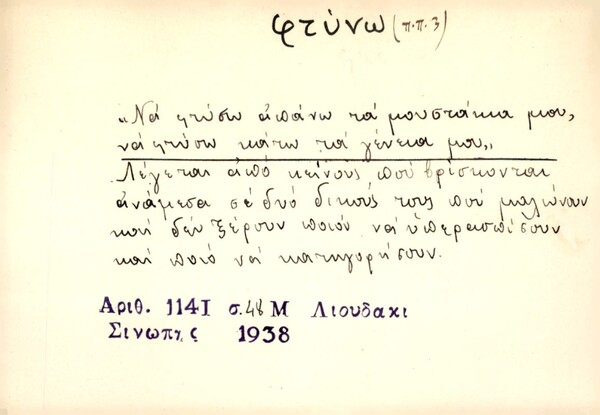 φτύνω (π.π. 3)
«Νά φτύσω ἀπάνω τά μουστάκια μου,
νά φτύσω κάτω τά γένεια μου„
Λέγεται ἀπό κείνους πού βρίσκονται
ἀνάμεσα σέ δυό δικούς τους πού μαλώνουν
καί δέν ξέρουν ποιόν νά ὑπερασπίσουν
καί ποιό νά κατηγορήσουν.
Αριθ. 1141 σ. 48 Μ Λιουδακι
Σινωπης 1938